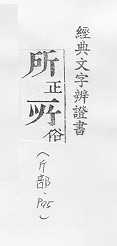 經典文字辨證書
所正㪽俗
(斤部, P95)